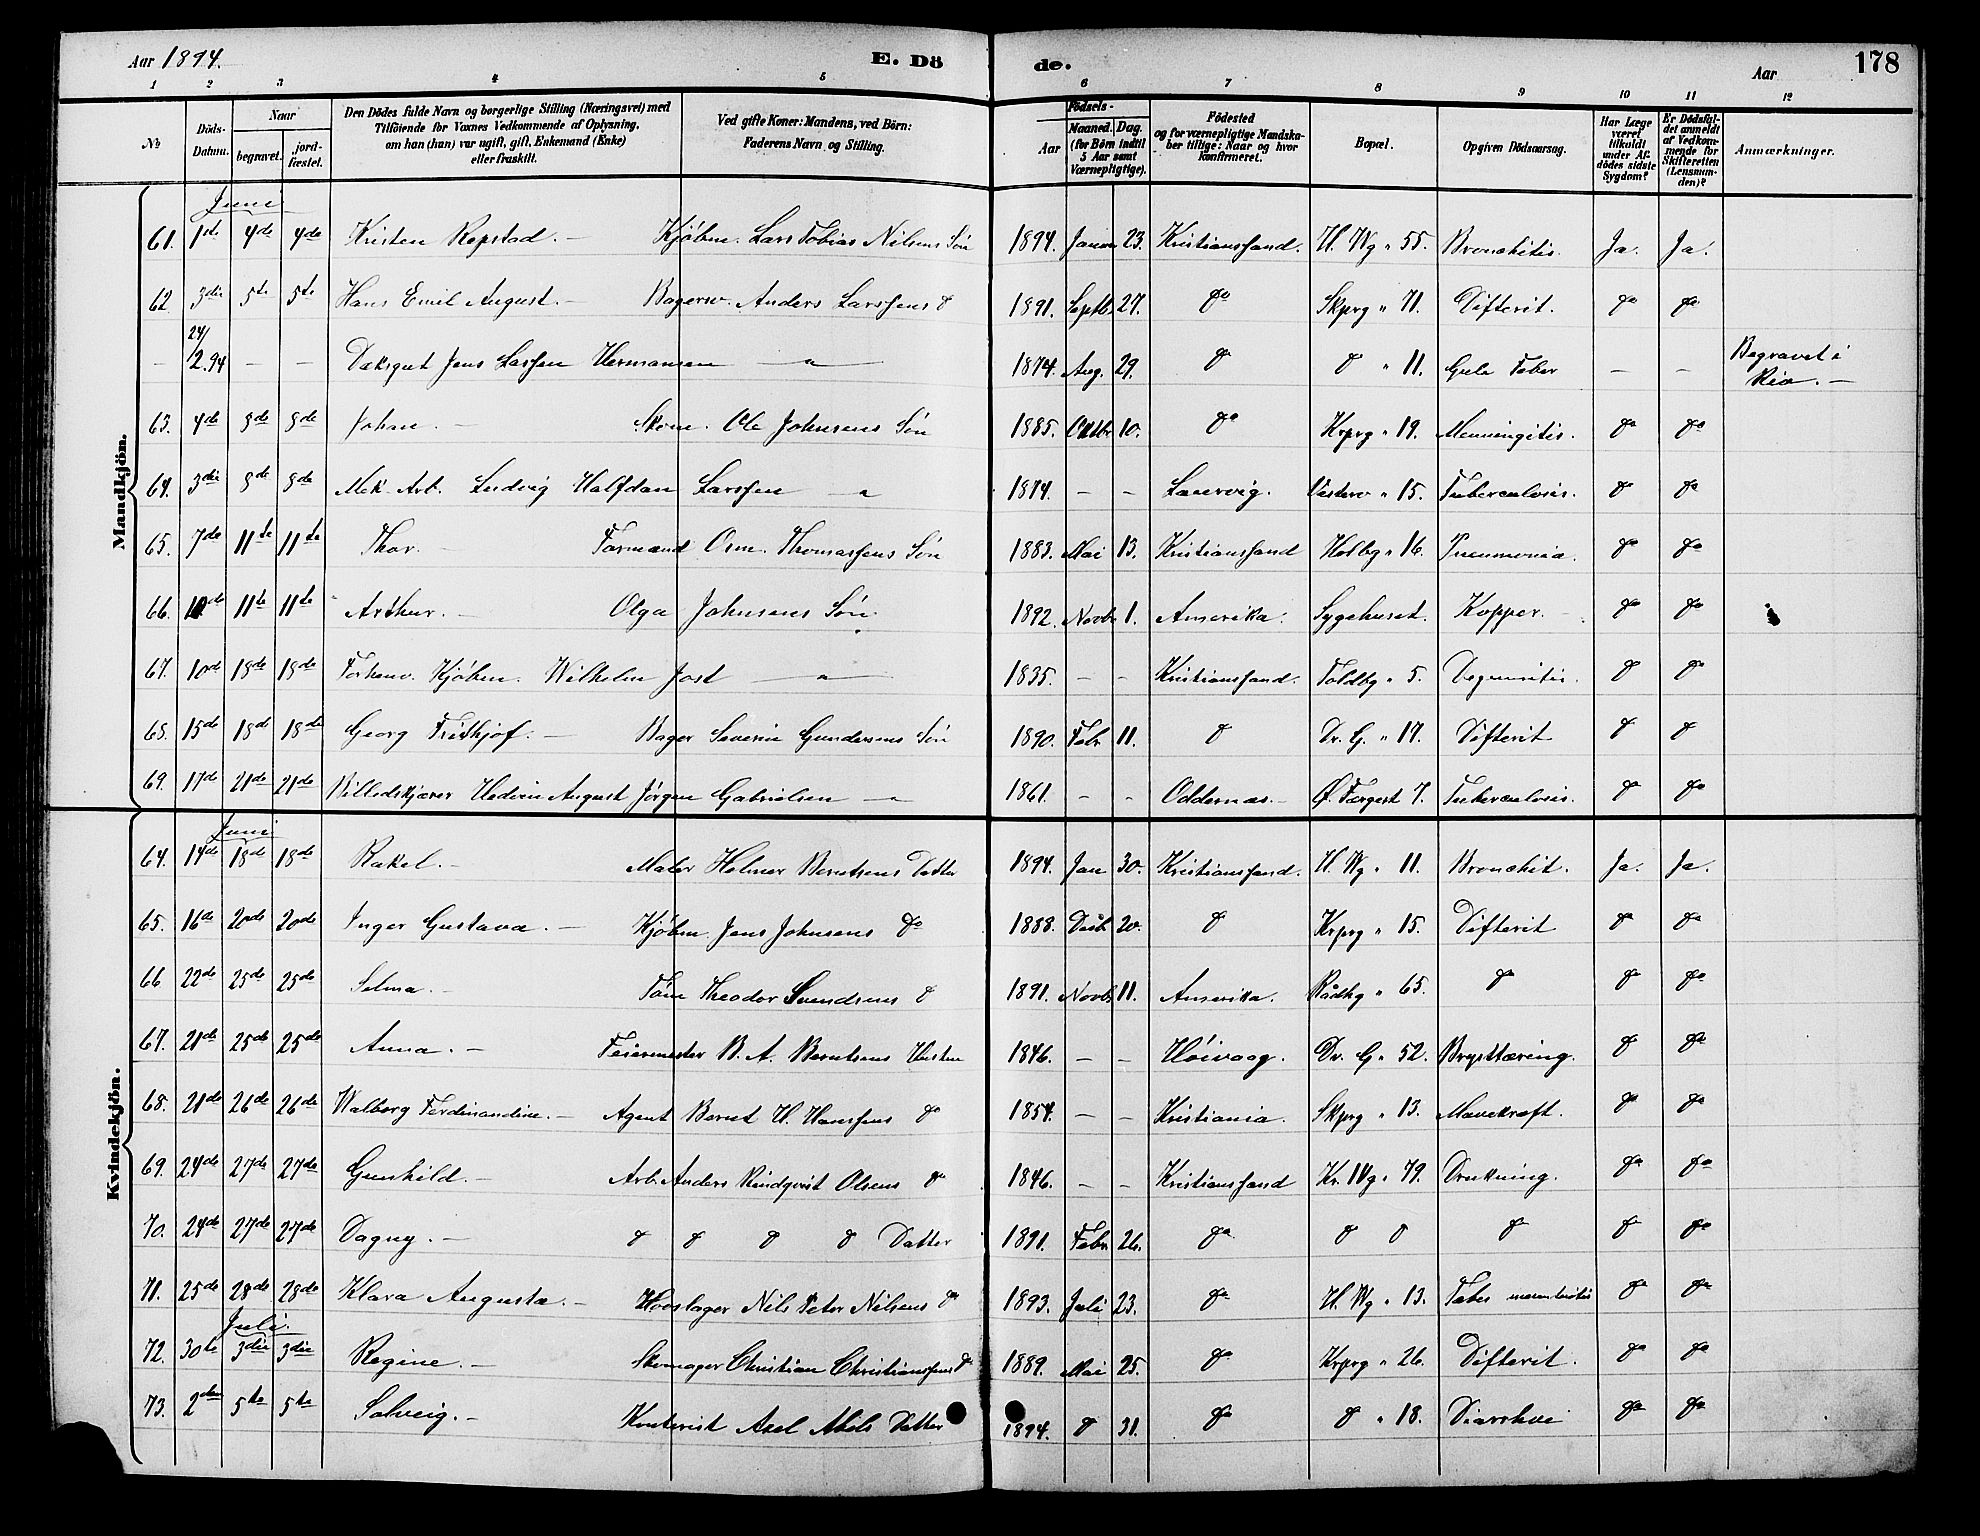 Aar 1894. E. Dö de. Aar 178
1 2 3 4 5 6 7 8 9 10 11 12
№ Döds-Datum. Naar begravet. jordfæstet. Den Dödes fulde Navn og borgerlige Stilling (Næringsvei) med Tilföiende for Voxnes Vedkommende af Oplysning, om han (hun) var ugift, gift, Enkemand (Enke) eller fraskilt. Ved gifte Koner: Mandens, ved Börn: Faderens Navn og Stilling. Födsels- Aar Maaned. Dag. (for Börn indtil 5 Aar samt Værnepligtige). Födested og for værnepligtige Mandskaber tillige: Naar og hvor konfirmeret. Bopæl. Opgiven Dödsaarsag. Har Læge været tilkaldt under Afdödes sidste Sygdom? Er Dödsfaldet anmeldt af Vedkommende for Skifteretten (Lensmanden)? Anmærkninger.
Mandkjön.
Juni
61. 1ste 4de 4de Kristen Repstad. – Kjøbm. Lars Tobias Nilsens Søn 1894. Januar 23. Kristianssand. H. Wg " 55. Bronchitis. Ja. Ja.
62 3die 5te 5te Hans Emil August. – Bagersv. Anders Larssens do 1891. Septb. 27. do Skprg " 71. Difterit. do do
– 24/2.94 – – Dæksgut Jens Larssen Hermansen – " – 1874. Aug. 29. do do " 11. Gule Feber – – Begravet i Rio. –
65. 4de 8de 8de Johan. – Skom. Ole Johnsens Søn 1885. Octbr 10. do Krprg " 19. Menningitis. do do
64. 3die 8de 8de Mek. Arb. Ludvig Halfdan Larssen – " 1874. – – Laurvig. Vesterv " 15. Tuberculosis. do do
65. 7de 11te 11te Thor. – Formand Orm. Thomassens Søn 1883. Mai 13. Kristianssand Holbg " 16. Pneumonia. do do
66. 10de 11te 11te Arthur. – Olga Johnsens Søn 1892. Novbr 1. Amerika. Sygehuset. Kopper. do do
67. 10de 18de 18de Forhenv. Kjøbm. Wilhelm Jost – " – 1835. – – Kristianssand. Toldbg " 5. do do
68. 15de 18de 18de Georg Frithjof. – Bager Severin Gundersens Søn 1890. Febr 11. do Dr. G. " 17. Difterit do do
69. 17de 21de 21de Billedskjærer August Jørgen Gabrielsen – " 1861. – – Oddernæs. – Ø. Færgest 7. Tuberculosis. do do
Kvindekjön.
Juni
64. 14de 18de 18de Rakel. – Maler Helmer Berntsens Datter 1894. Jan 30. Kristianssand. H. Wg " 11. Bronchit. Ja. Ja.
65. 16de 20de 20de Inger Gustava. – Kjøbm. Jens Johnsens do 1888. Decb 20. do Krprg " 15. Difterit do do
66 22de 25de 25de Selma. – Tøm Theodor Svendsens do 1891. Novbr 11. Amerika. Rådhg " 65. do do do
67. 21de 25de 25de Anna. – Feiermester B. A. Berntsens Hustru 1846. – – Høivaag. Dr. G " 52. Brysttæring. do do
68. 21de 26de 26de Walborg Ferdinandine. – Agent Bernt H. Hanssens do 1854. – – Kristiania. Skprg " 13. Mavekræft. do do
69. 24de 27de 27de Gunhild. – Arb. Anders Rindqvist Olsens do 1846. – – Kristianssand Kr. IVg " 79. Drukning. do do
70. 24de 27de 27de Dagny. – do do do do Datter 1891. Febr 26. do do do do do do
71. 25de 28de 28de Klara Augusta. – Hovslager Nils Peter Nilsens do 1893. Juli 23. do H. Wg " 13. do do
Juli.
72. 30te 3die 3die Regine. – Skomager Christian Christianssens do 1889. Mai 25. do Krprg " 26. Difterit. do do
73. 2den 5te 5te Solveig. – Kontorist Axel Abels Datter 1894. do 31. do do " 18. Diarrhoe do do